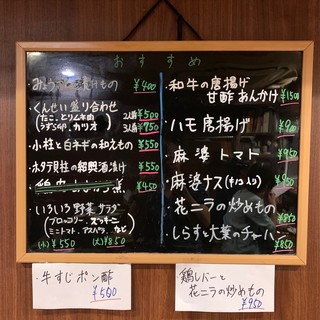 おすすめ
・みょうがと漬けもの ¥400
・くんせい盛り合わせ
(たこ、とりくん肉 2人前 ¥500
うずら卵、カリオ) 3人前 ¥750
・小柱と白ネギの和えもの ¥550
・ホタテ貝柱の紹興酒漬け ¥550
¥450
・いろいろ野菜サラダ
(ブロッコリー、ズッキーニ
ミニトマト、アスパラ、など)
(小)¥550 (大)¥850
・和牛の唐揚げ
甘酢あんかけ ¥1500
・ハモ唐揚げ ¥900
・麻婆トマト ¥950
・麻婆ナス(辛口入り)
・花ニラの炒めもの
・しらすと大葉のチャーハン ¥850
・牛すじポン酢
¥500
鶏レバーと
花ニラの炒めもの
¥950